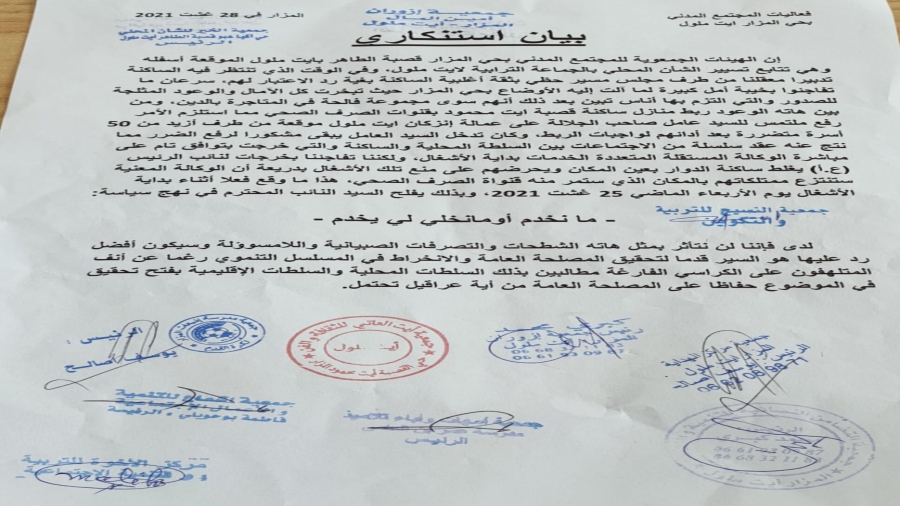 فعاليات المجتمع المدني
بحي المزار أيت ملول
المزار في 28 غشت 2021
جمعية ازوران
أمين المال
المزار ايت ملول
جمعية الخير للشأن المحلي
الرئيس
بيان استنكاري
إن الهيئات الجمعوية للمجتمع المدني بحي المزار قصبة الطاهر بايت ملول الموقعة أسفله
وهي تتابع تسيير الشأن المحلي بالجماعة الترابية لايت ملول، وفي الوقت الذي تنتظر فيه الساكنة
تدبيرا معقلنا من طرف مجلس مسير حظي بثقة أغلبية الساكنة بغية رد الاعتبار لهم، سرعان ما
تفاجئوا بخيبة أمل كبيرة لما آلت إليه الأوضاع بحي المزار حيث تبخرت كل الآمال والوعود المثلجة
للصدور والتي التزم بها أناس تبين بعد ذلك أنهم سوى مجموعة فالحة في المتاجرة بالدين، ومن
بين هاته الوعود ربط منازل ساكنة قصبة ايت حمود بقنوات الصرف الصحي مما استلزم الأمر
رفع ملتمس للسيد عامل صاحب الجلالة على عمالة إنزكان ايت ملول موقعة من طرف أزيد من 50
أسرة متضررة بعد أدائهم لواجبات الربط، وكان تدخل السيد العامل يبقى مشكورا لرفع الضرر مما
نتج عنه عقد سلسلة من الاجتماعات بين السلطة المحلية والساكنة والتي خرجت بتوافق تام على
مباشرة الوكالة المستقلة المتعددة الخدمات بداية الأشغال، ولكننا تفاجئنا بخرجات لنائب الرئيس
(ع.ا) يغلط ساكنة الدوار بعين المكان ويحرضهم على منع تلك الأشغال بذريعة أن الوكالة المعنية
ستنتزع ممتلكاتهم بالمكان الذي ستمر منه قنواة الصرف الصحي، هذا ما وقع فعلا أثناء بداية
الأشغال يوم الأربعاء الماضي 25 غشت 2021، وبذلك يفلح السيد النائب المحترم في نهج سياسة:
جمعية النسيج للتربية
والتكوين
- ما نخدم أومانخلي لي يخدم -
لدى فإننا لن نتأثر بمثل هاته الشطحات والتصرفات الصبيانية واللامسوولة وسيكون أفضل
رد عليها هو السير قدما لتحقيق المصلحة العامة والانخراط في المسلسل التنموي رغما عن أنف
المتلهفون على الكراسي الفارغة مطالبين بذلك السلطات المحلية والسلطات الإقليمية بفتح تحقيق
في الموضوع حفاظا على المصلحة العامة من أية عراقيل تحتمل.
الرئيس :
يوسف اصالح
ملول
06 61 93 09 67
فاطمة بوحويلي - الرئيسة
الرئيس
مركز
للتربية